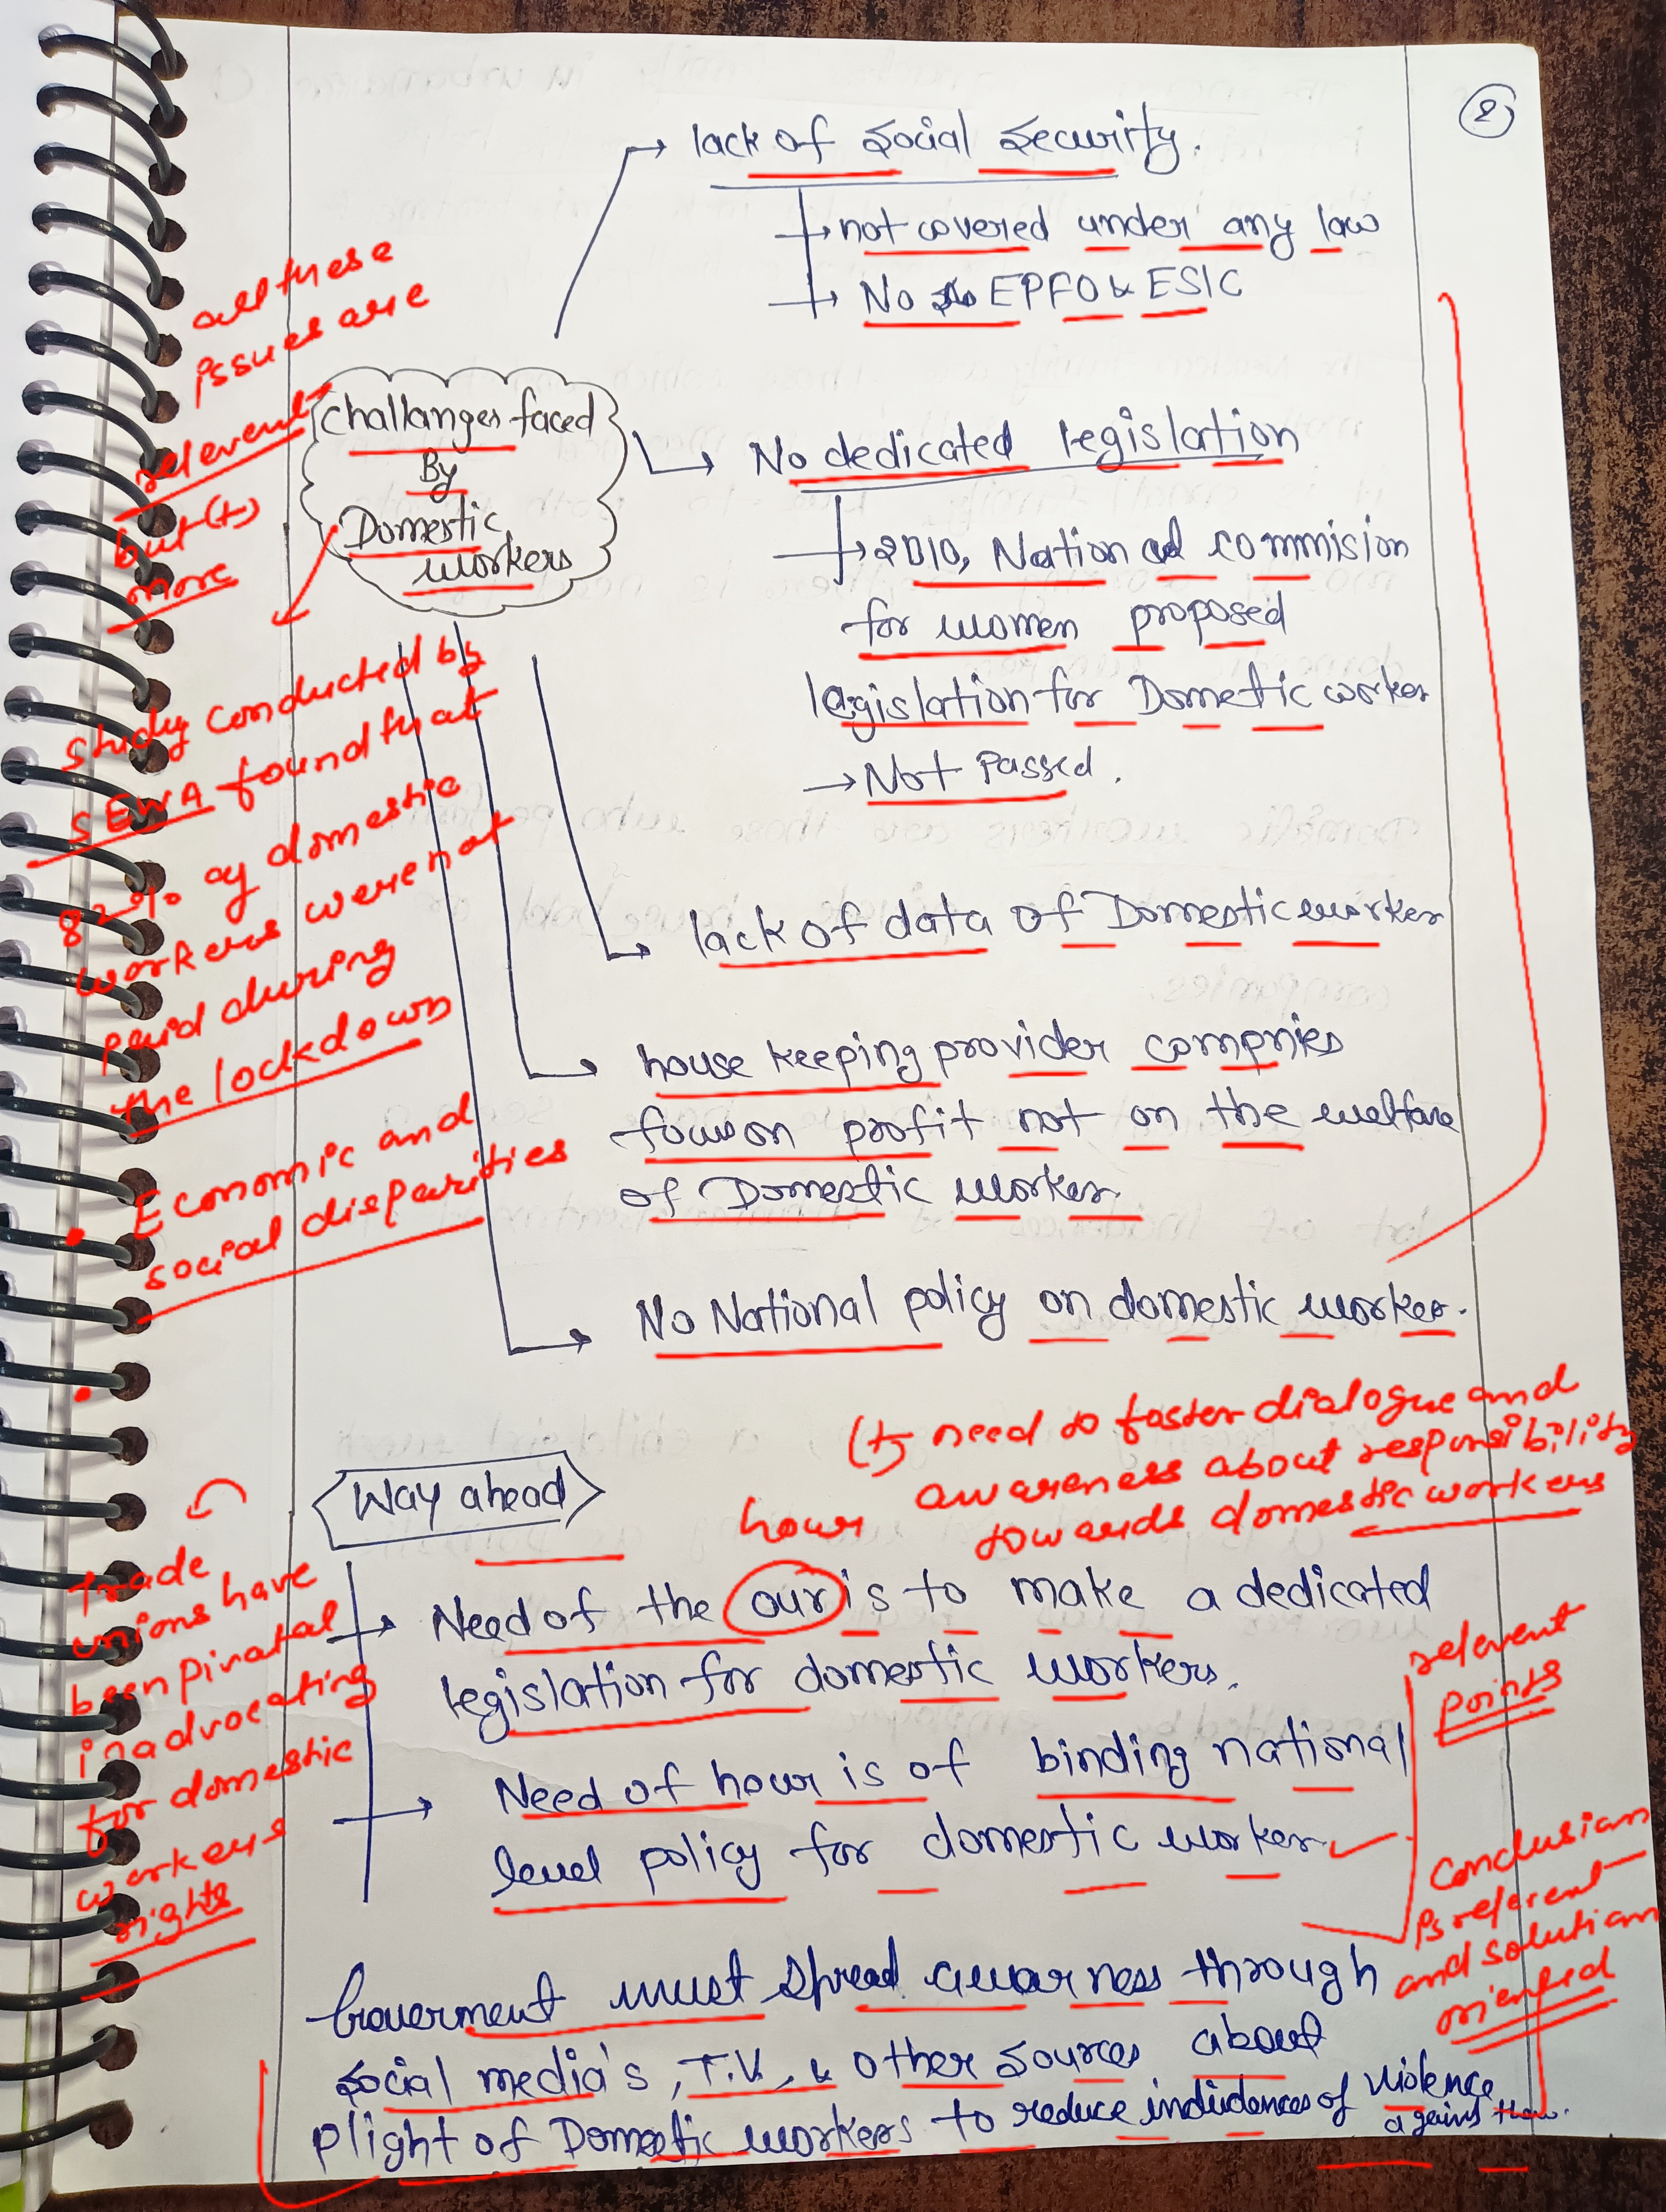 2
lack of social security.
not covered under any law
No EPFO & ESIC
all these
issues are
relevent
but (+)
more
challanges faced
By
Domestic
workers
No dedicated legislation
2010, National commision
for women proposed
legislation for Dometic worker
Not Passed.
study conducted by
SEWA found that
82% of domestic
workers were not
paid during
the lockdown
lack of data of Domestic worker
house keeping provider compnies
focus on profit not on the welfare
of Domestic worker.
Economic and
social disparities
No National policy on domestic worker.
(+) need to foster dialogue and
awareness about responsibility
towards domestic workers
Way ahead
hour
Need of the our is to make a dedicated
legislation for domestic workers.
Need of hour is of binding national
level policy for domestic worker
relevent
points
Trade
unions have
been pivotal
in advocating
for domestic
workers
rights
conclusion
is relevent
and solution
oriented
Goverment must spread awarness through
social media's, T.V. & other sources about
plight of Domestic workers to reduce incidences of violence
against them.